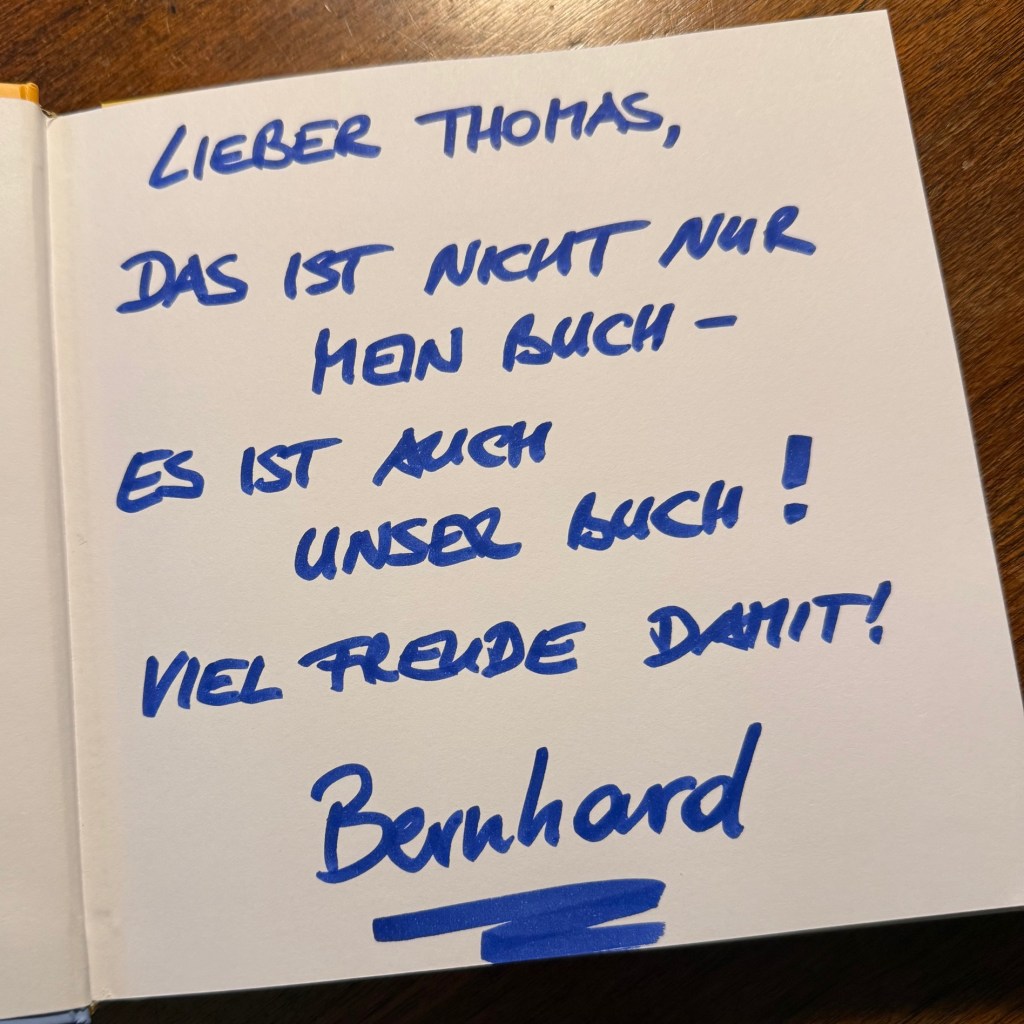 LIEBER THOMAS,
DAS IST NICHT NUR
MEIN BUCH –
ES IST AUCH
UNSER BUCH!
VIEL FREUDE DAMIT!
Bernhard